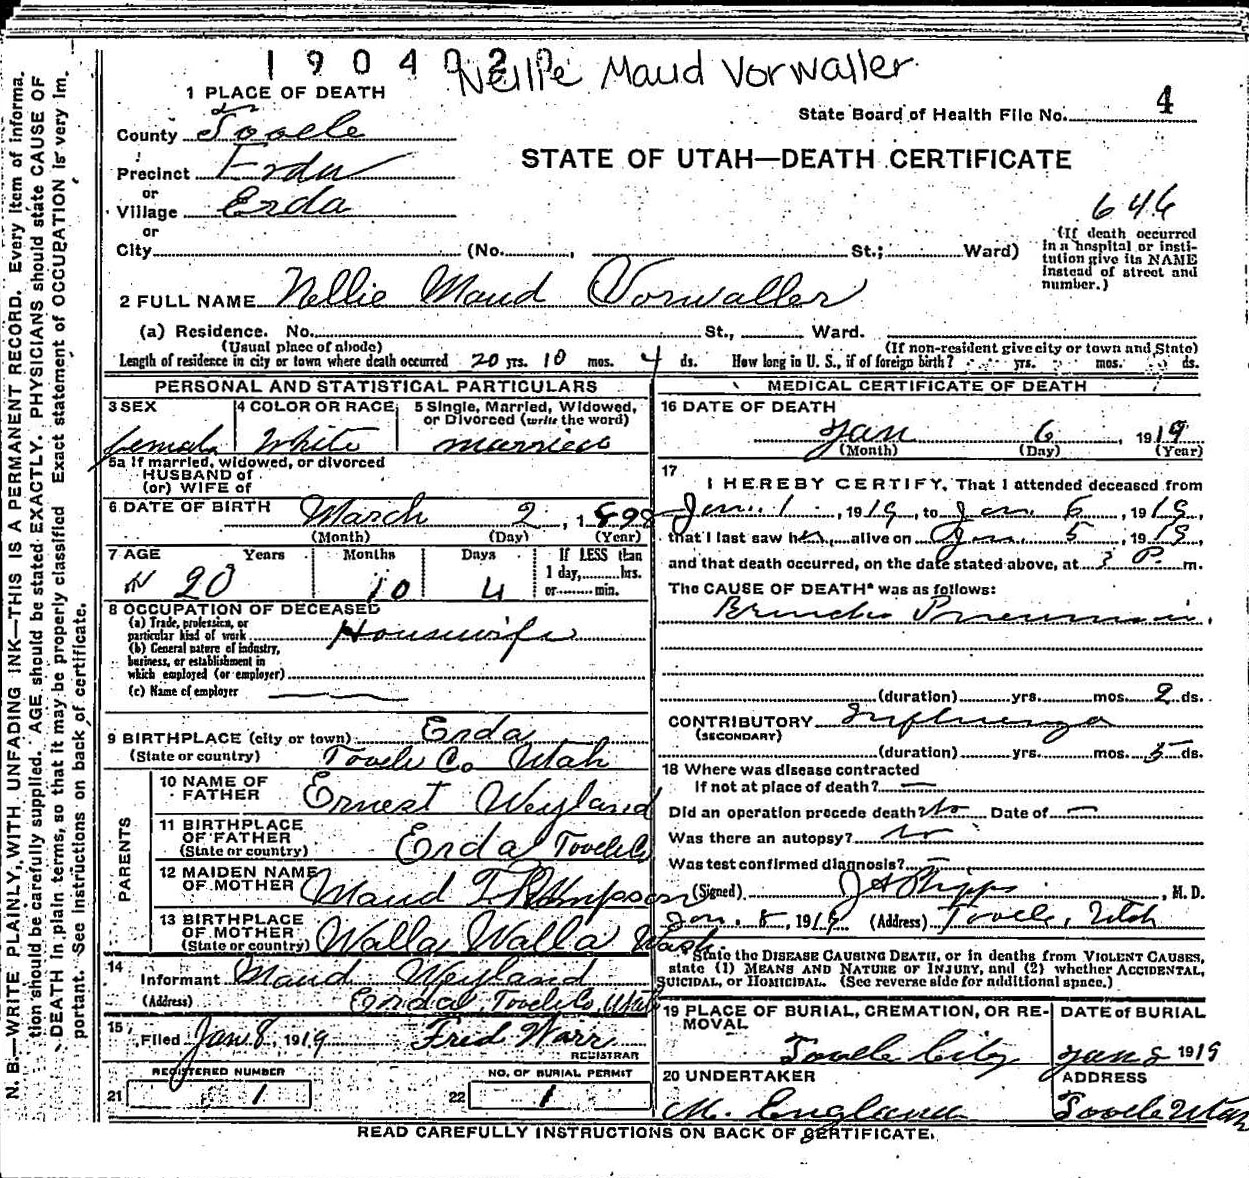 1 9 0 4 0 2
Nellie Maud Vorwaller
1 PLACE OF DEATH
State Board of Health File No. 4
County Tooele
STATE OF UTAH—DEATH CERTIFICATE
Precinct Erda
or
Village Erda
646
or
City (No. , St.; Ward)
(If death occurred in a hospital or institution give its NAME instead of street and number.)
2 FULL NAME Nellie Maud Vorwaller
(a) Residence. No. St., Ward.
(Usual place of abode) (If non-resident give city or town and State)
Length of residence in city or town where death occurred 20 yrs. 10 mos. 4 ds. How long in U. S., if of foreign birth? yrs. mos. ds.
PERSONAL AND STATISTICAL PARTICULARS
3 SEX
female
4 COLOR OR RACE
White
5 Single, Married, Widowed, or Divorced (write the word)
married
5a If married, widowed, or divorced
HUSBAND of
(or) WIFE of
6 DATE OF BIRTH March 2, 1898
(Month) (Day) (Year)
7 AGE Years Months Days If LESS than
1 day, hrs.
or min.
20 10 4
8 OCCUPATION OF DECEASED
(a) Trade, profession, or particular kind of work Housewife
(b) General nature of industry, business, or establishment in which employed (or employer)
(c) Name of employer
9 BIRTHPLACE (city or town) Erda
(State or country) Tooele Co Utah
PARENTS
10 NAME OF FATHER Ernest Weyland
11 BIRTHPLACE OF FATHER (State or country) Erda Tooele Co
12 MAIDEN NAME OF MOTHER Maud Thompson
13 BIRTHPLACE OF MOTHER (State or country) Walla Walla Wash
14
Informant Maud Weyland
(Address) Erda, Tooele Co, Utah
15
Filed Jan 8, 1919 Fred Warr
REGISTRAR
REGISTERED NUMBER NO. OF BURIAL PERMIT
21 1 22 1
MEDICAL CERTIFICATE OF DEATH
16 DATE OF DEATH
Jan 6, 1919
(Month) (Day) (Year)
17
I HEREBY CERTIFY, That I attended deceased from
Jan. 1, 1919, to Jan 6, 1919,
that I last saw her alive on Jan. 5, 1919,
and that death occurred, on the date stated above, at 3 P. m.
The CAUSE OF DEATH* was as follows:
Broncho Pneumonia.
(duration) yrs. mos. 2 ds.
CONTRIBUTORY Influenza
(SECONDARY)
(duration) yrs. mos. 5 ds.
18 Where was disease contracted
If not at place of death? —
Did an operation precede death? No Date of —
Was there an autopsy? No
Was test confirmed diagnosis? —
(Signed) J A Phipps, M. D.
Jan. 8, 1919 (Address) Tooele, Utah
*State the DISEASE CAUSING DEATH, or in deaths from VIOLENT CAUSES,
state (1) MEANS AND NATURE OF INJURY, and (2) whether ACCIDENTAL,
SUICIDAL, or HOMICIDAL. (See reverse side for additional space.)
19 PLACE OF BURIAL, CREMATION, OR REMOVAL
Tooele City
DATE of BURIAL
Jan 8 1919
20 UNDERTAKER
M. England
ADDRESS
Tooele Utah
READ CAREFULLY INSTRUCTIONS ON BACK OF CERTIFICATE.
N. B.—WRITE PLAINLY, WITH UNFADING INK—THIS IS A PERMANENT RECORD. Every item of informa-
tion should be carefully supplied. AGE should be stated EXACTLY. PHYSICIANS should state CAUSE OF
DEATH in plain terms, so that it may be properly classified Exact statement of OCCUPATION is very im-
portant. See instructions on back of certificate.